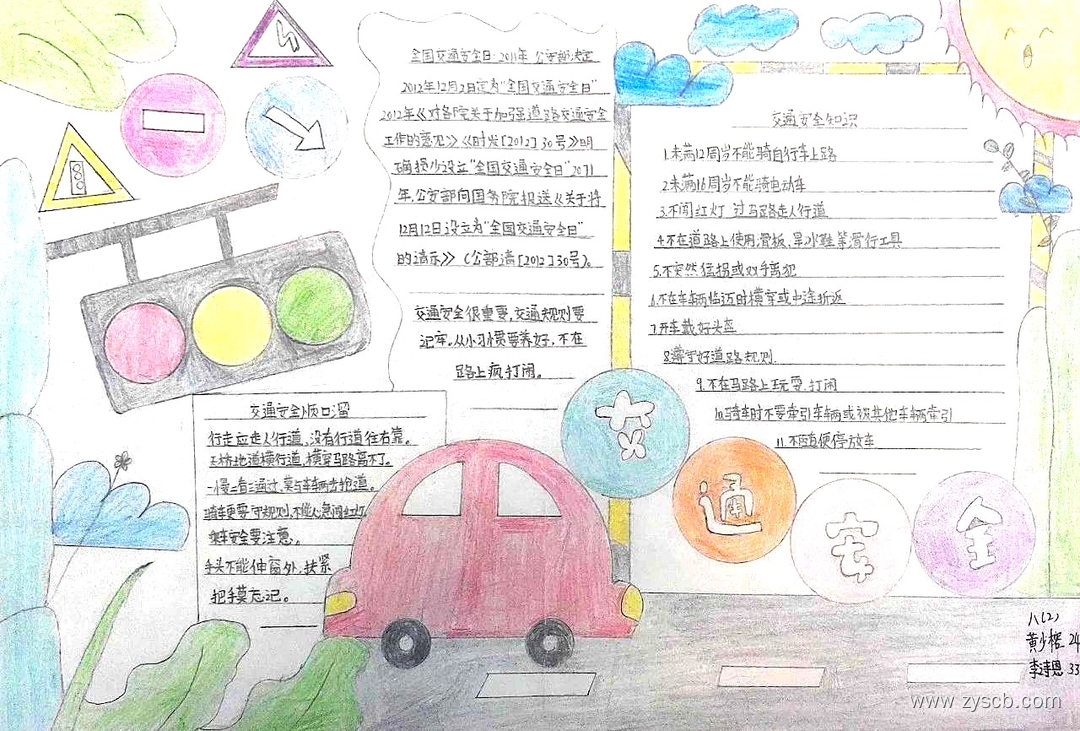 全国交通安全日:2011年 公安部决定
2012年12月2日定为“全国交通安全日”
2012年《对务院关于加强道路交通安全
工作的意见》《时发[2012]30号》明
确提少设立“全国交通安全日”2071
年,公安部向国务院报送《关于将
12月12日设立为“全国交通安全日”
的请示》(公部请[2012]30号)。
交通安全很重要,交通规则要
记牢。从小习惯要养好,不在
路上疯打闹。
交通安全顺口溜
行走应走人行道,没有行道往右靠。
天桥地道横行道,横穿马路离不了。
一慢二看三通过,莫与车辆去抢道。
骑车更要守规则,不能心急闯红灯
乘车安全要注意。
手头不能伸窗外,扶紧
把手莫忘记。
交通安全知识
1.未满12周岁不能骑自行车上路
2.未满16周岁不能骑电动车
3.不闯红灯 过马路走人行道
4.不在道路上使用滑板,旱冰鞋等滑行工具
5.不突然猛拐或双手离把
6.不在车辆临近时横穿或中途折返
7.开车戴好头盔
8.遵守好道路规则
9.不在马路上玩耍,打闹
10.骑车时不要牵引车辆或被其他车辆牵引
11.不随便停放车
交
通
安
全
八(2)
黄少榕 24
李诗恩 33
www.zyscb.com